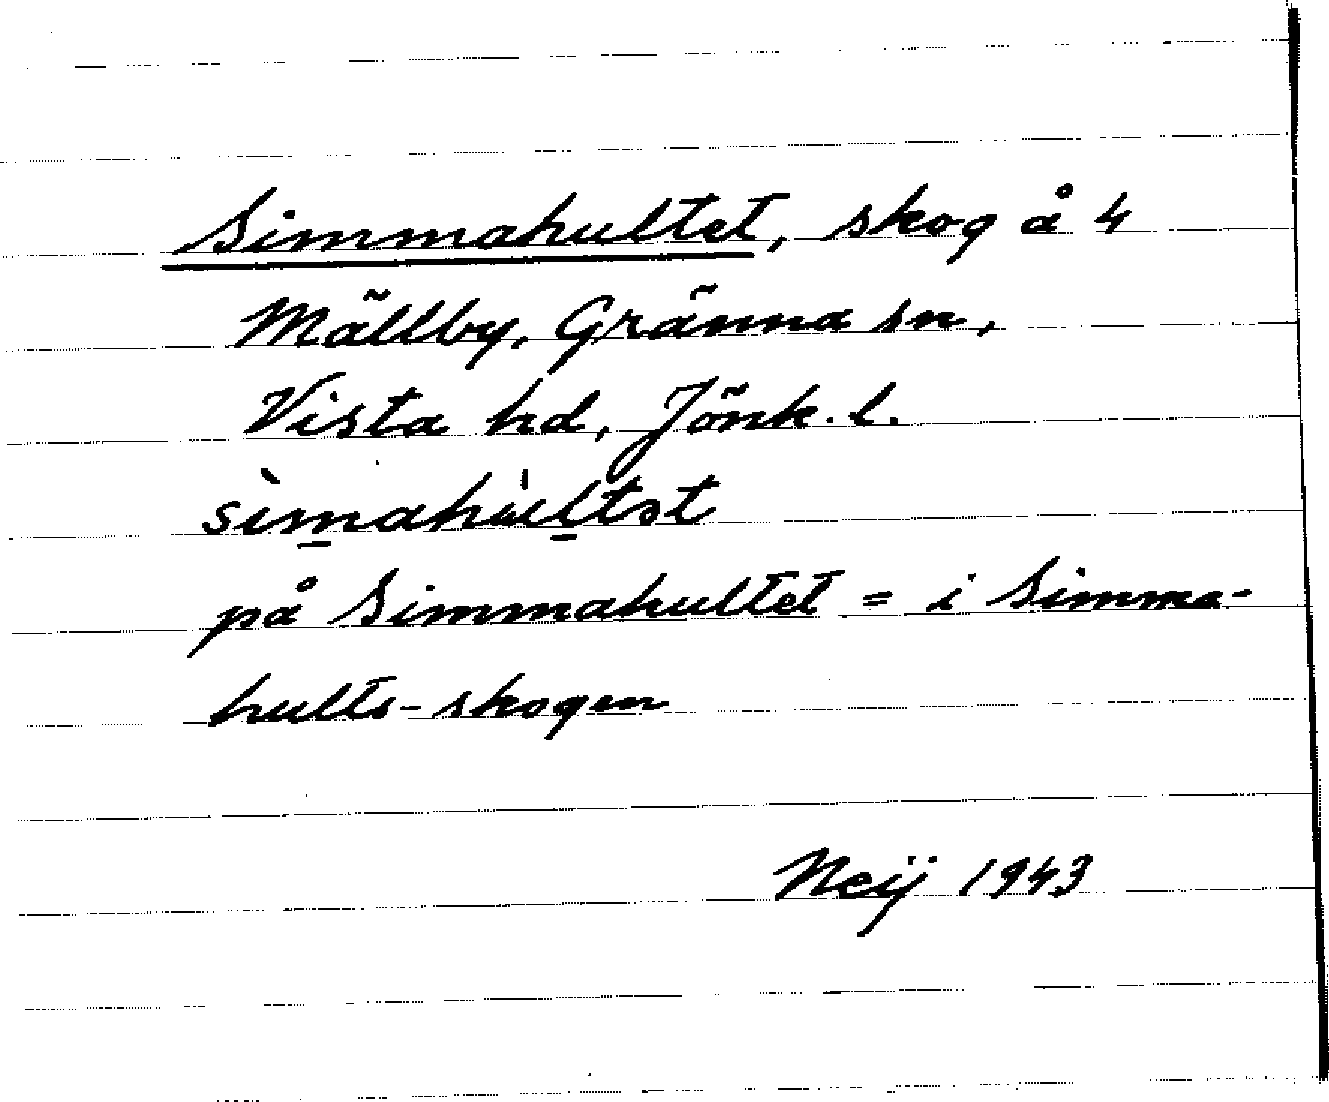 Simmahultet, skog å 4
Mällby, Gränna sn,
Vista hd, Jönk. l.
på Simmahultet = i Simma-
hults-skogen
Neij 1943